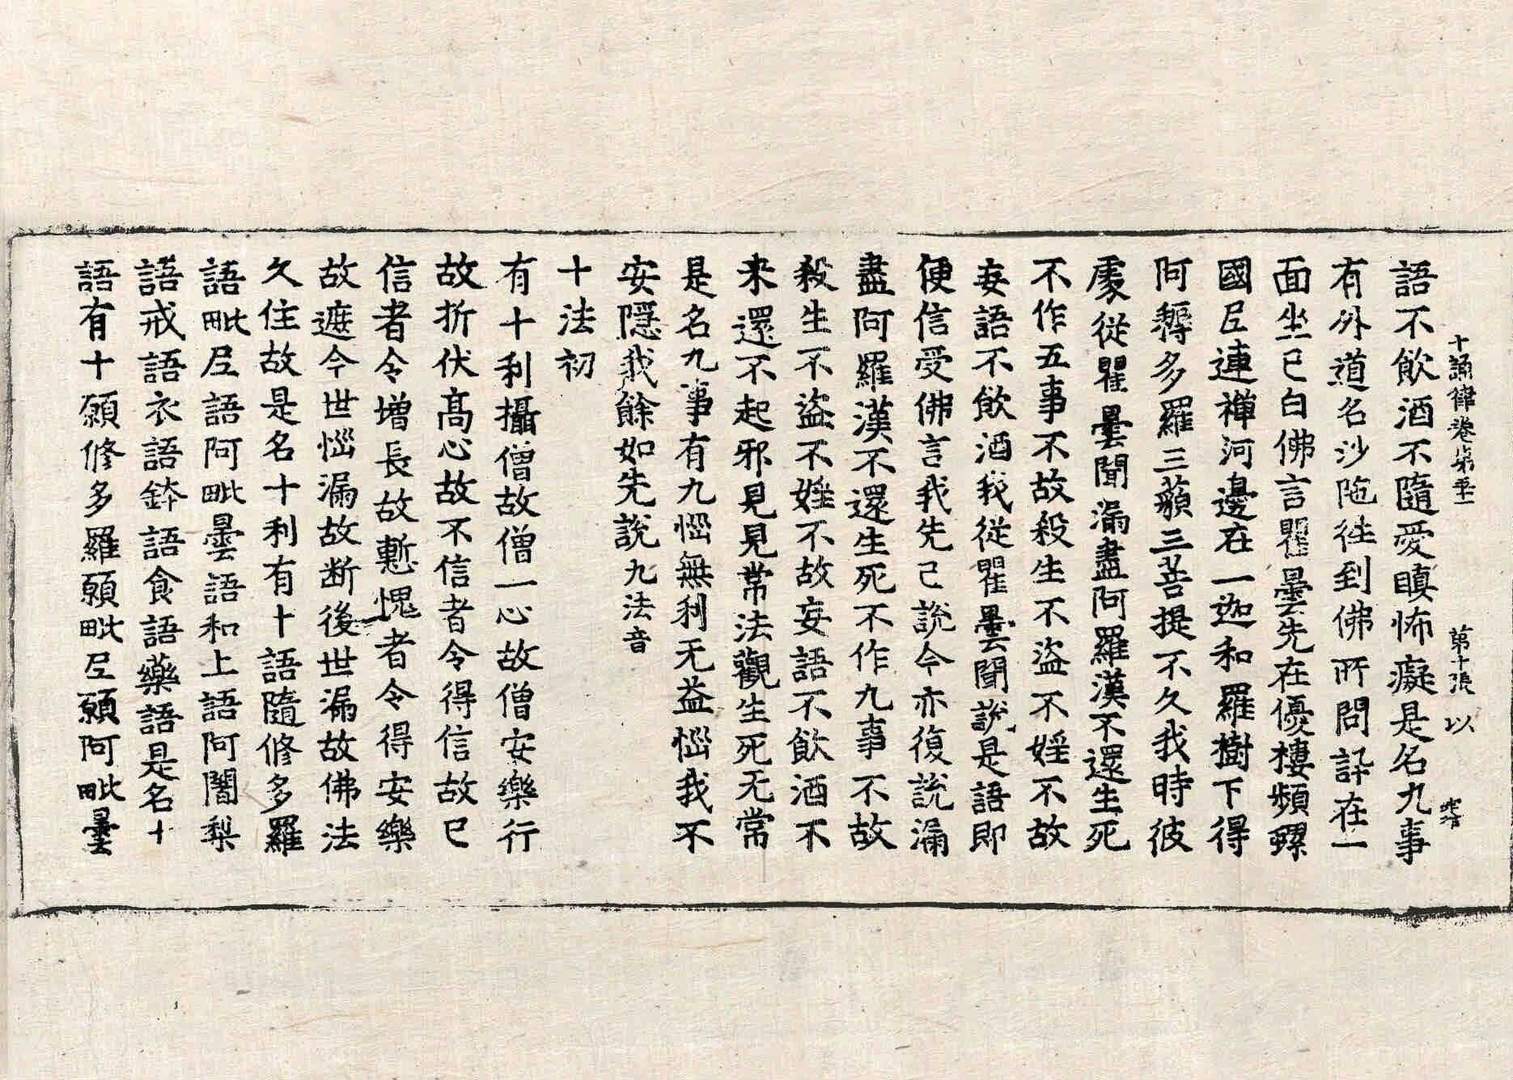 十誦律卷第五十一 第十張 以
語不飲酒不隨愛瞋怖癡是名九事
有外道名沙陁往到佛所問訊在一
面坐已白佛言瞿曇先在優樓頻螺
國尼連禪河邊在一迦和羅樹下得
阿耨多羅三藐三菩提不久我時彼
處從瞿曇聞漏盡阿羅漢不還生死
不作五事不故殺生不盜不婬不故
妄語不飲酒我從瞿曇聞說是語即
便信受佛言我先已說今亦復說漏
盡阿羅漢不還生死不作九事不故
殺生不盜不婬不故妄語不飲酒不
来還不起邪見見常法觀生死无常
是名九事有九惱無利无益惱我不
安隱我餘如先說九法音
十法初
有十利攝僧故僧一心故僧安樂行
故折伏高心故不信者令得信故已
信者令增長故慙愧者令得安樂
故遮今世惱漏故断後世漏故佛法
久住故是名十利有十語隨修多羅
語毗尼語阿毗曇語和上語阿闍梨
語戒語衣語鉢語食語藥語是名十
語有十願修多羅願毗尼願阿毗曇